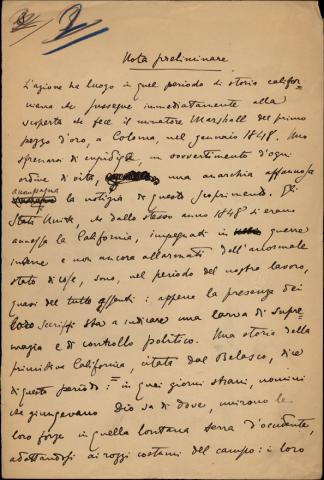 Nota preliminare
L'azione ha luogo in quel periodo di storia califor=
niana che prosegue immediatamente alla
scoperta che fece il minatore Marshall del primo
pezzo d'oro, a Coloma, nel gennaio 1848. Uno
sfrenarsi di cupidigie, un sovvertimento d'ogni
ordine di vita, una anarchia affannosa
accompagna
la notizia di questo scoprimento. Gli
Stati Uniti, che dallo stesso anno 1848 si erano
annessa la California, impegnati in guerre
interne e non ancora allarmati dall'anormale
stato di cose, sono, nel periodo del nostro lavoro,
quasi del tutto assenti: appena la presenza dei
loro sceriffi sta a indicare una larva di supre=
mazia e di controllo politico. Una storia della
primitiva California, citata dal Belasco, dice
di questo periodo: "in quei giorni strani, uomini
che giungevano Dio sa di dove, unirono le
loro forze in quella lontana terra d'occidente,
adattandosi ai rozzi costumi del campo: i loro